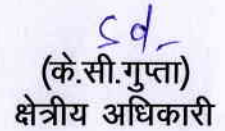 Sd-
(के.सी.गुप्ता)
क्षेत्रीय अधिकारी